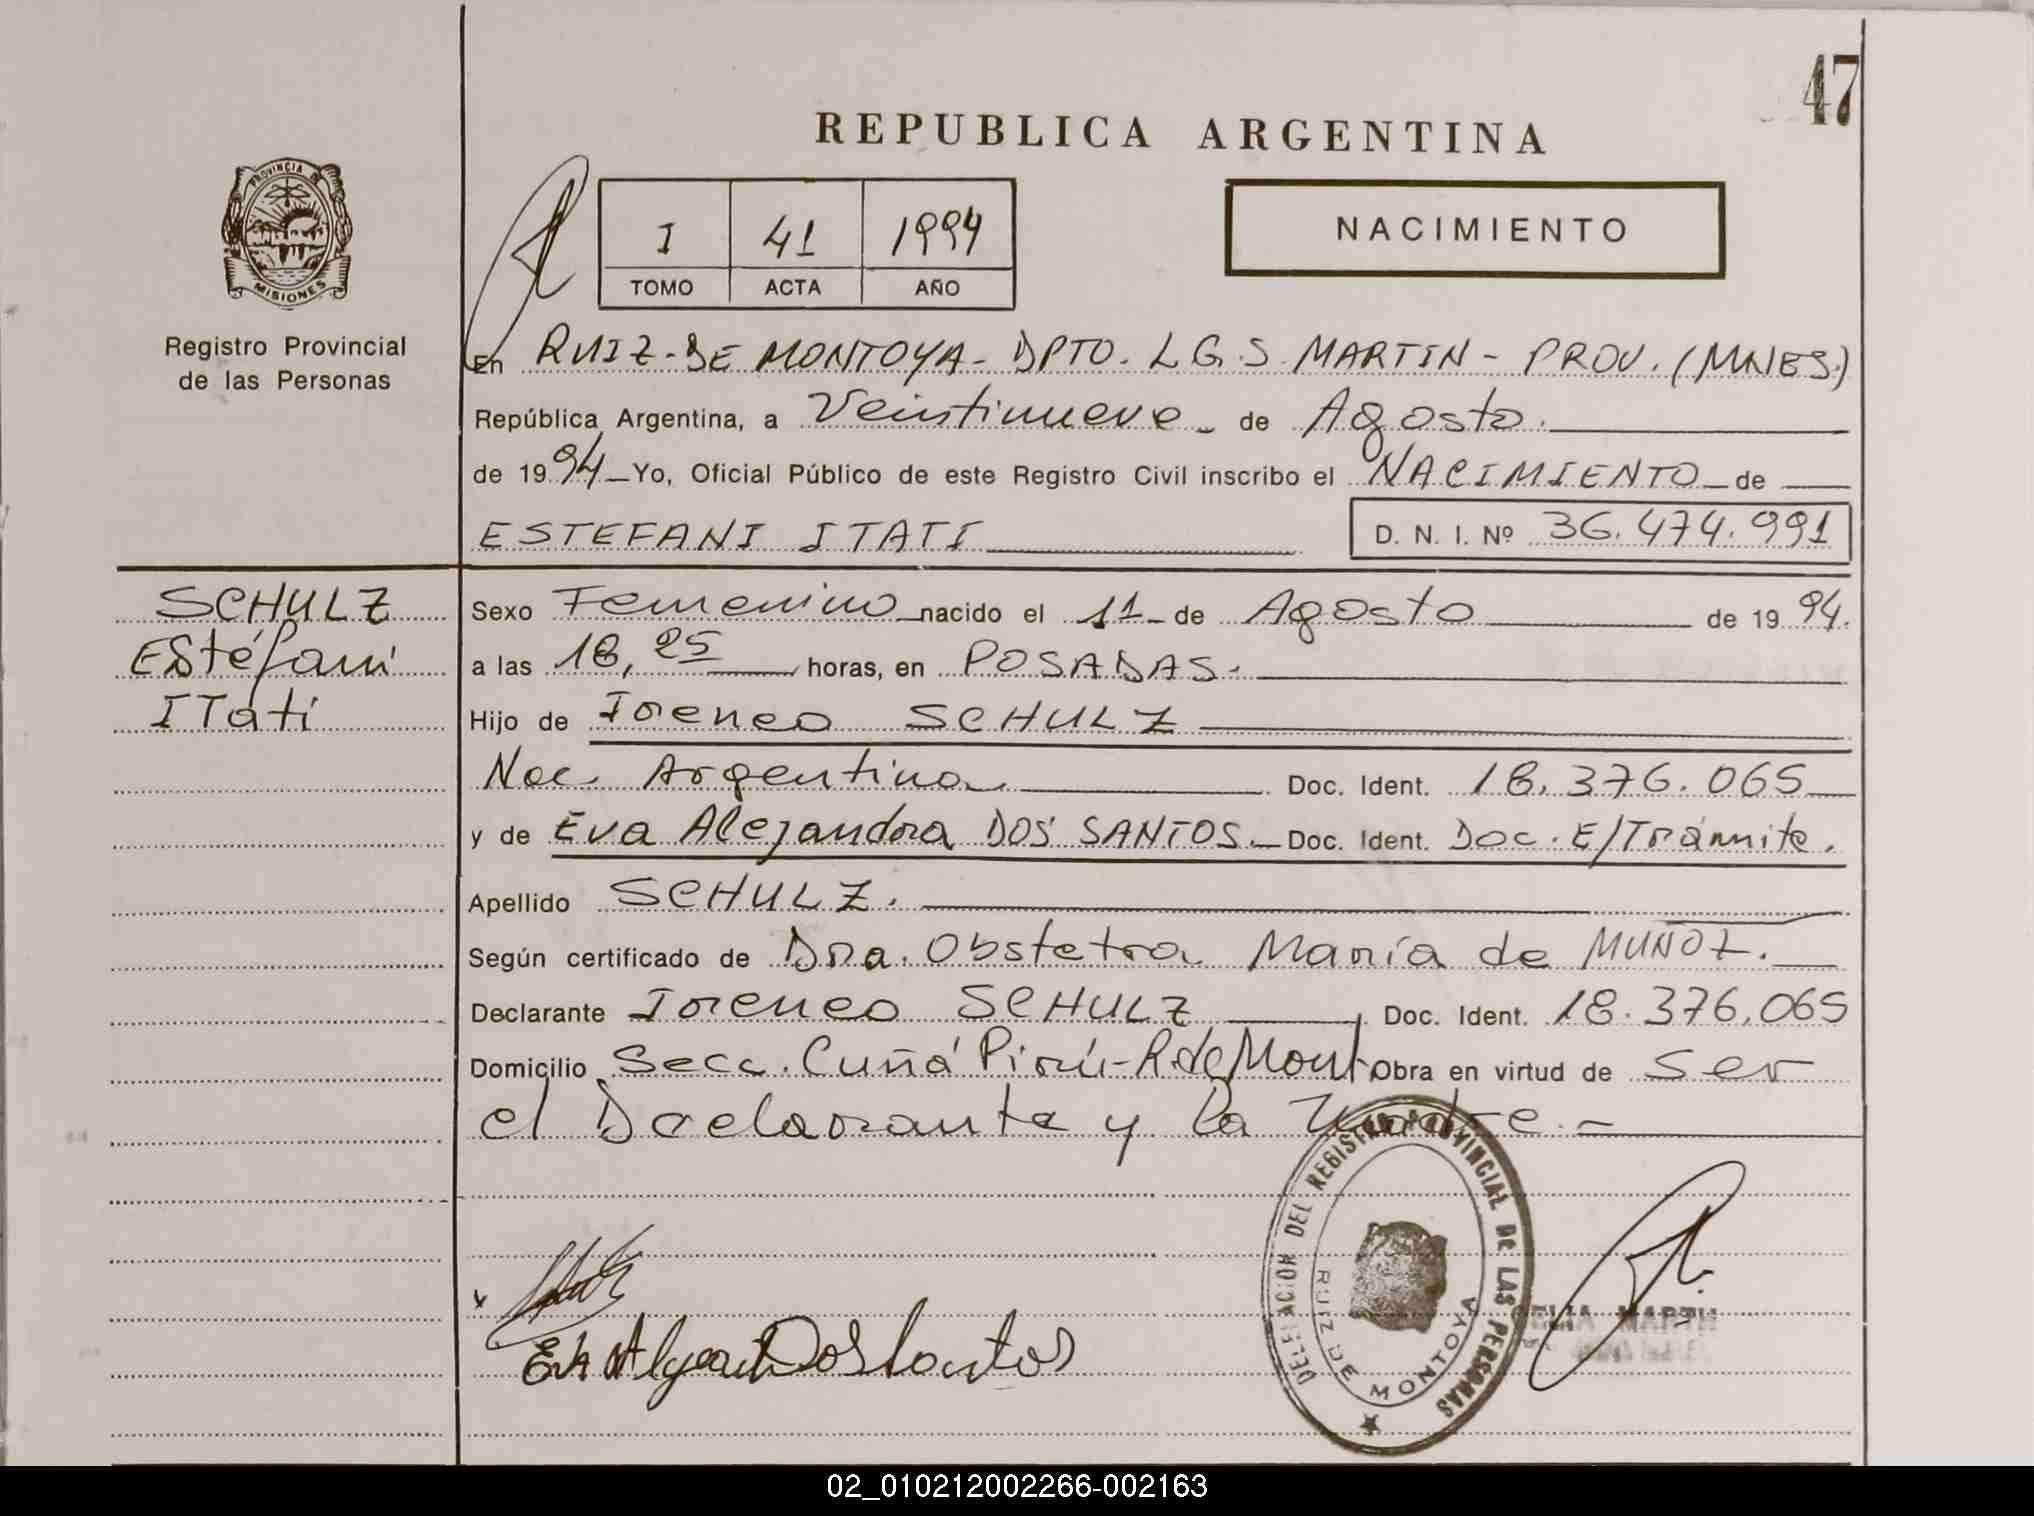 47
REPUBLICA ARGENTINA
PROVINCIA DE
MISIONES
Registro Provincial
de las Personas
I 41 1994
TOMO ACTA AÑO
NACIMIENTO
En RUIZ-DE MONTOYA- DPTO. L.G.S. MARTIN - PROV. (MNES.)
República Argentina, a Veintinueve - de Agosto.
de 1994 Yo, Oficial Público de este Registro Civil inscribo el NACIMIENTO de
ESTEFANI ITATI D. N. I. Nº 36.474.991
SCHULZ
Estéfani
ITati
Sexo Femenino nacido el 11 - de Agosto de 1994.
a las 18,25 horas, en POSADAS.
Hijo de Ireneo SCHULZ
Nac. Argentina. Doc. Ident. 18.376.065
y de Eva Alejandra DOS SANTOS. Doc. Ident. Doc. E/Trámite.
Apellido SCHULZ.
Según certificado de Dra. Obstetra María de MUÑOZ.
Declarante Ireneo SCHULZ Doc. Ident. 18.376.065
Domicilio Secc. Cuñá Pirú-R.de Mont. Obra en virtud de ser
el Declarante y la Madre.-
DELEGACION DEL REGISTRO PROVINCIAL DE LAS PERSONAS
RUIZ DE MONTOYA
Dos Santos
02_010212002266-002163